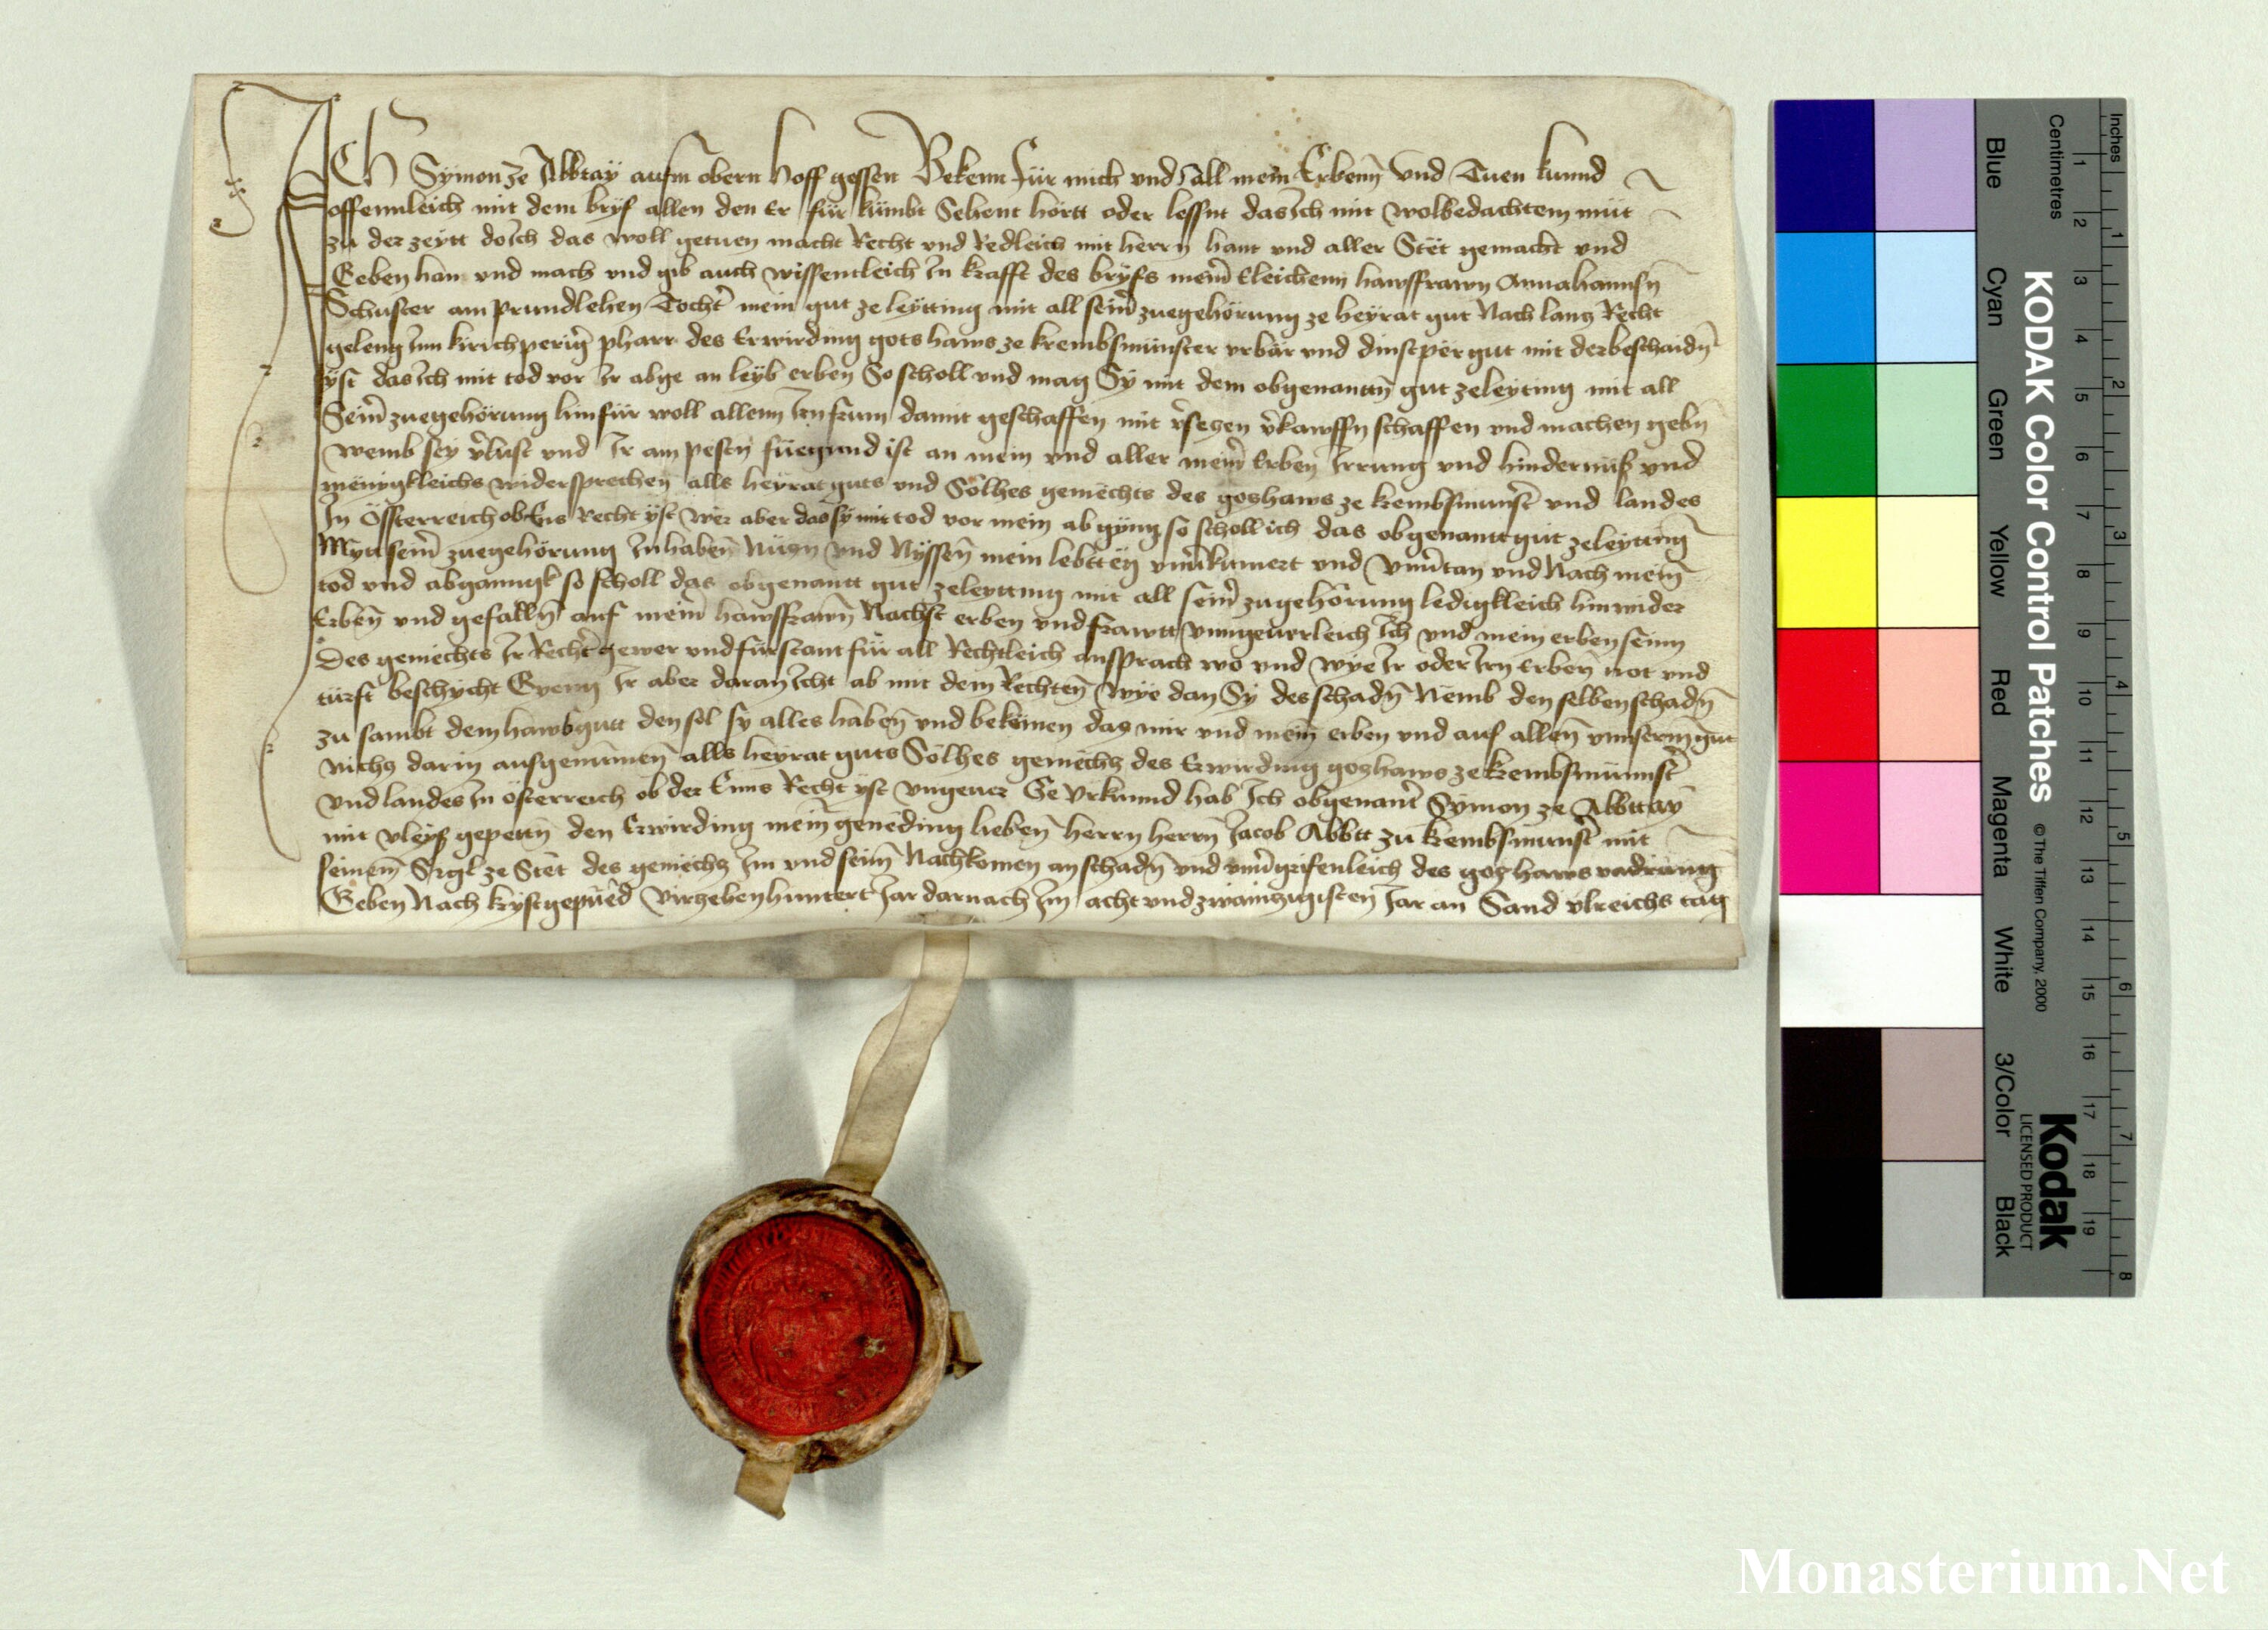 Ich Symon ze Abbtaÿ aufm obern hoff gessen Bekenn für mich vnd all mein Erbenn̄ Vnd Tuen kunnd
offennleich mit dem brÿf allen den Er für kümbt Sehent hörtt oder lessnt das Ich mit wolbedachtem müt
zu der zeytt do Ich das woll getuen macht Recht vnd Redleich mit herrn hant vnd aller Stët gemacht vnd
Geben han vnd mach vnd gib auch wissentleich In krafft des brÿfs mein̄ Eleichenn hawsfrawn Anna hannsn̄
Schuster am prundlehen Tocht̄ mein gut ze leÿtting mit all sein̄ zuegehörung ze heyrat gut Nach lantz Recht
geleng Inn kirichperiḡ pharr des Erwirding gotshaws ze krembsmünster vrbär vnd dinstpër gut mit der beschaidn̄
ÿst das Ich mit tod vor Ir abge an leÿb erben So scholl vnd mag Sÿ mit dem obgenanttn̄ gut ze leyting mit all
Sein̄ zuegehörung hinfür woll allenn Irn frum damit geschaffen mit v̄setzen v̄kawffn schaffen vnd machen gebn̄
wemb sey v̄lust vnd Ir am pestn̄ füegund ist an mein vnd aller mein̄ Erben̄ Irrung vnd hindernüß vnd
mënigkleichs widersprechen̄ alls heyrat guts vnd Sölhes gemëchts des goshaws ze krembsmünst̄ vnd landes
In Össterreich ob Ens Recht ÿst wër aber das sÿ mit tod vor mein ab gÿng so scholl ich das obgenantt gut ze leytting
Mytt sein̄ zuegehörung Inhaben̄ Nützn vnd Nÿssen̄ mein lebtteg vnu̅kumert vnd Vnu̅tan vnd Nach mein̄
tod vnd abganngk so scholl das obgenantt gut ze leytting mit all sein̄ zugehörung ledigkleich hinwider
Erben̄ vnd gefalln̄ auf mein̄ hawsfrawn̄ Nachst erben vnd frawtt vnngeuerleich Ich vnd mein erben seinn
Des gemëchts Ir Recht̄ gewer vnd fürstant für all Rechtleich ansprach wo vnd wÿe Ir oder Irn Erben̄ not vnd
türft beschÿcht Gyenng Ir aber daran Icht ab mit dem Rechten̄ Wÿe dan Sÿ des schadn̄ Nëmb den selben schadn̄
zu sambt dem hawbgutt den sol sÿ alles haben̄ vnd bekömen das mir vnd mein̄ erben vnd auf allen̄ vnnserm gut
nichtz darin ausgenu̅men̄ alls heyrat guts Sölhes gemëchtz des Erwirding gotzhaws ze krembsmünnst̄
vnd landes In österreich ob der Enns Recht ÿst vngeuer Ze Vrkunnd hab Ich obgenant̄ Sÿmon ze Abbttaÿ
mit vleÿß gepettn̄ den Erwirding mein̄ genëding lieben̄ herrn herrn̄ Jacob Abbtt zu krembsmunst̄ mit
seinem̄ Sigl ze Stët des gemëchtz Im vnd sein̄ Nachkomen an schadn̄ vnd vnu̅grifenleich des gotzhaws
Geben Nach krÿstgepürd̄ Virtzehenhuntert Jar darnach Im acht vnd zwaintzigisten Jar an Sand Vlreichs tag
KODAK Color Control Patches
© The Tiffen Company, 2000
Kodak
LICENSED PRODUCT
Inches
Centimetres
Blue
Cyan
Green
Yellow
Red
Magenta
White
3/Color
Black
1 2 3 4 5 6 7 8 9 10 11 12 13 14 15 16 17 18 19
1 2 3 4 5 6 7 8
Monasterium.Net